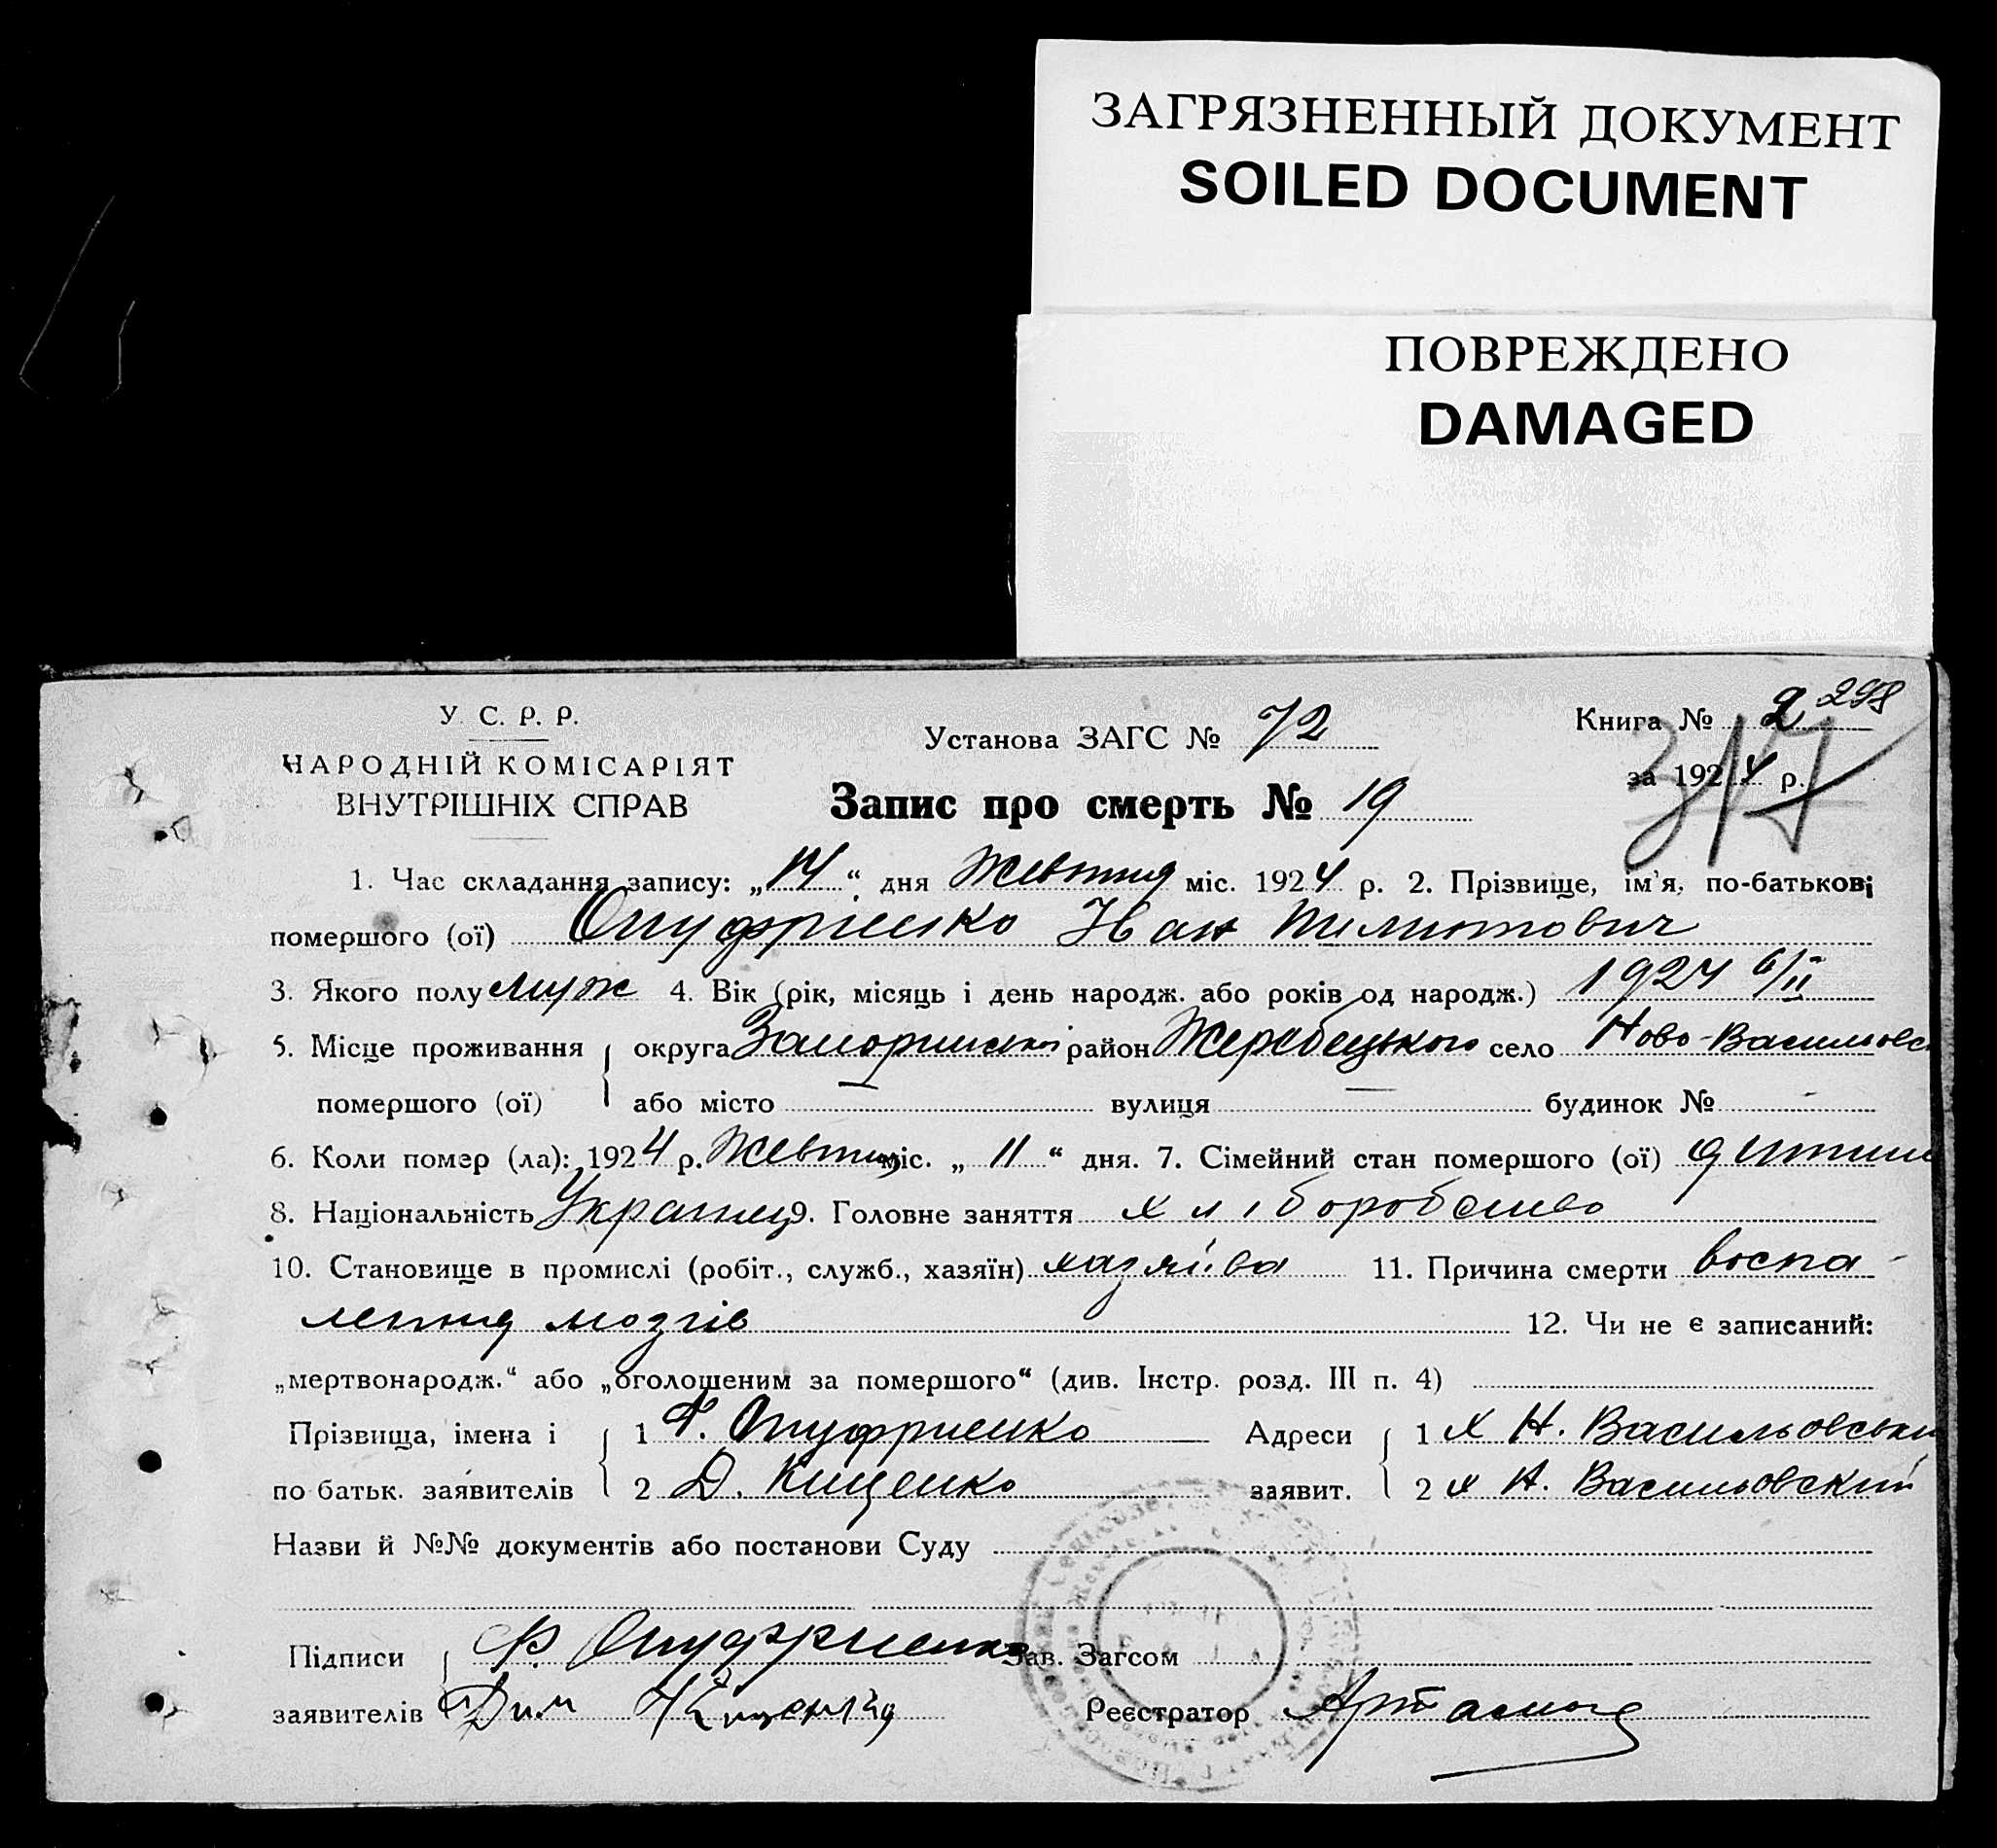 ЗАГРЯЗНЕННЫЙ ДОКУМЕНТ
SOILED DOCUMENT
ПОВРЕЖДЕНО
DAMAGED
У С. Р. Р.
НАРОДНІЙ КОМІСАРІЯТ
ВНУТРІШНІХ СПРАВ
Установа ЗАГС № 72
Книга № 2 298
за 1924 р.
317
Запис про смерть № 19
1. Час складання запису: „14“ дня Жевтня міс. 1924 р. 2. Прізвище, ім'я, по-батькові
помершого (ої) Онуфрієнко Иван
3. Якого полу муж 4. Вік (рік, місяць і день народж. або років од народж.) 1924 6/II
5. Місце проживання округа район Жеребецького село Ново-Васильовс
помершого (ої) або місто — вулиця — будинок № -
6. Коли помэр (ла): 1924 р. Жевтня міс. „11“ дня. 7. Сімейний стан помершого (ої)
8. Національність Украінец 9. Головне заняття хліборобство
10. Становище в промислі (робіт., служб., хазяїн) хазяіва 11. Причина смерти воспа-
лення мозгів 12. Чи не є записаний:
„мертвонародж.“ або „оголошеним за помершого“ (див. Інстр. розд. III п. 4)
Прізвища, імена і 1 Ф. Онуфриенко Адреси 1 х Н. Васильовськи
по батьк. заявителів 2 Д. Кищенко заявит. 2 х Н. Васильовский
Назви й №№ документів або постанови Суду
Підписи Ф Онуфриенко Зав. Загсом
заявителів Дим Кищенко Реєстратор